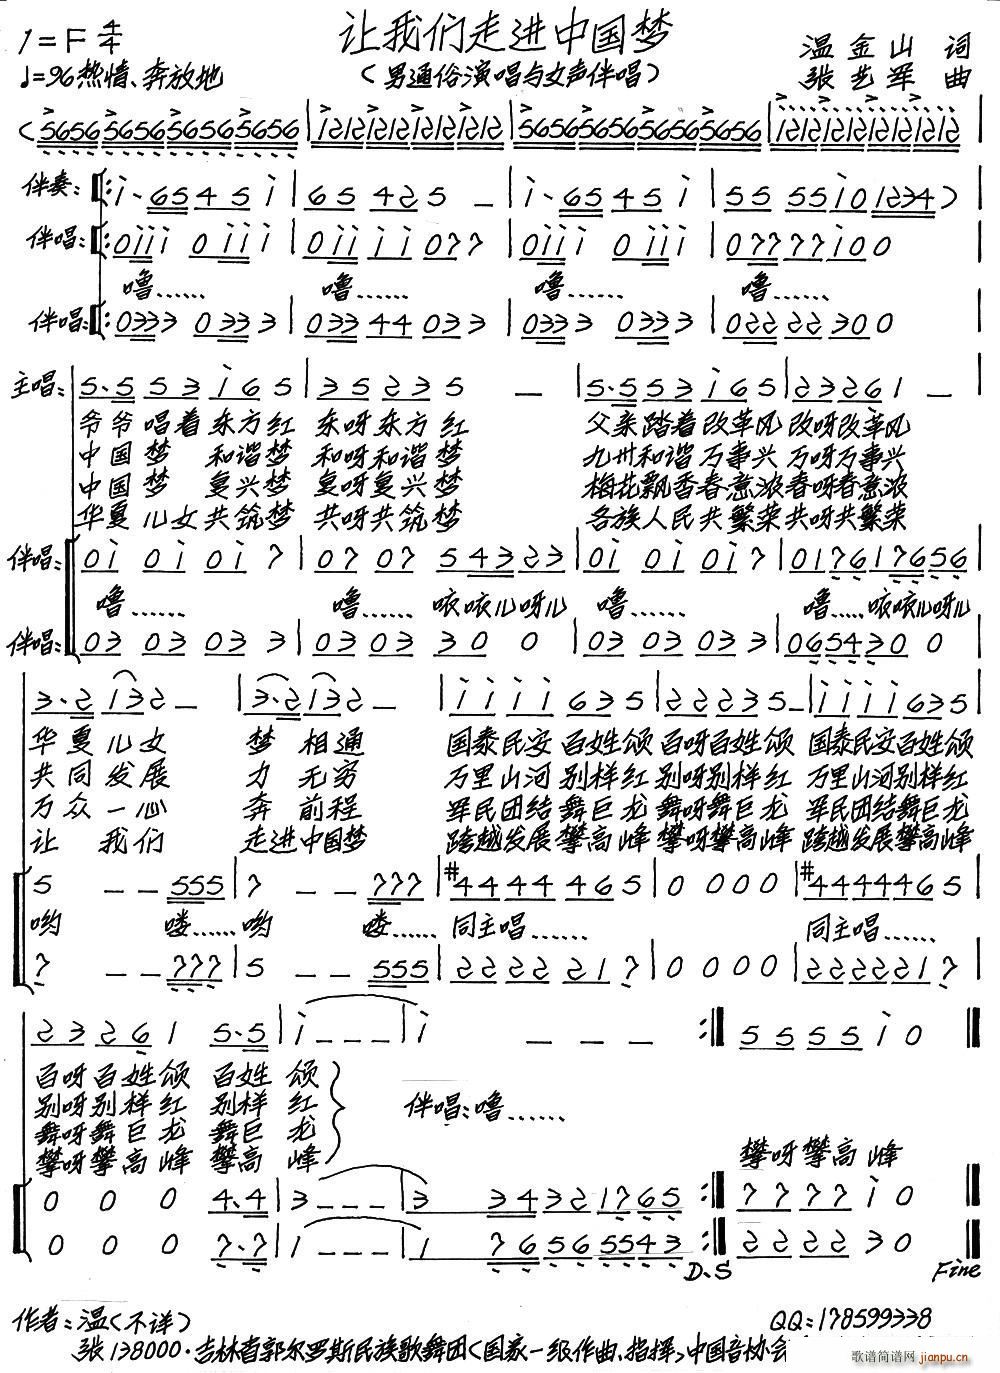 让我们走进中国梦
1=F 4/4
♩=96 热情、奔放地
(男通俗演唱与女声伴唱)
温金山 词
张艺军 曲
(5656 5656 5656 5656 | 1212 1212 1212 1212 | 5656 5656 5656 5656 | 1212 1212 1212 1212 |
伴奏: i·65 45 i | 65 425 — | i·65 45 i | 55 55 i0 1234)
伴唱: 0iii 0iii i | 0ii ii 077 | 0iii 0iii | 07777 i00
噜…… 噜…… 噜…… 噜……
伴唱: 0333 0333 | 033 44 033 | 0333 0333 | 0222 22 300
主唱: 5·5 53 i65 | 35 235 — | 5·5 53 i65 | 23261 —
爷爷 唱着 东方红 东呀东方红 父亲踏着改革风 改呀改革风
中国梦 和谐梦 和呀和谐梦 九州和谐万事兴 万呀万事兴
中国梦 复兴梦 复呀复兴梦 梅花飘香春意浓 春呀春意浓
华夏儿女共筑梦 共呀共筑梦 各族人民共繁荣 共呀共繁荣
伴唱: 0i 0i 0i 7 | 07 07 54323 | 0i 0i 0i 7 | 0176 17656
噜…… 噜…… 咴咴儿呀儿 噜…… 噜…… 咴咴儿呀儿
伴唱: 03 03 03 3 | 03 03 30 0 | 03 03 03 3 | 065430 0
3·2 132 — | 3·2 132 — | iiii 635 | 22235 — | iiii 635
华夏儿女 梦相通 国泰民安百姓颂 百呀百姓颂 国泰民安百姓颂
共同发展 力无穷 万里山河别样红 别呀别样红 万里山河别样红
万众一心 奔前程 军民团结舞巨龙 舞呀舞巨龙 军民团结舞巨龙
让我们 走进中国梦 跨越发展攀高峰 攀呀攀高峰 跨越发展攀高峰
5 — — 555 | 7 — — 777 | #4444 465 | 0000 | #4444 465
哟 喽…… 哟 喽…… 同主唱…… 同主唱……
7 — — 777 | 5 — — 555 | 2222 217 | 0000 | 2222 217
23 26 1 5·5 | i — — — | i — — — :‖ 5555 i0 ‖
百呀百姓颂 百姓颂
别呀别样红 别样红
舞呀舞巨龙 舞巨龙
攀呀攀高峰 攀高峰
伴唱:噜……
攀呀攀高峰
0 0 0 4·4 | 3 — — — | 3 3432 1765 :‖ 7777 i0
0 0 0 7·7 | 1 — — — | 1 7656 5543 :‖ 2222 30
D.S
Fine
作者:温(不详)
QQ:178599338
张138000·吉林省郭尔罗斯民族歌舞团(国家一级作曲、指挥)中国音协会
歌谱简谱网 jianpu.cn